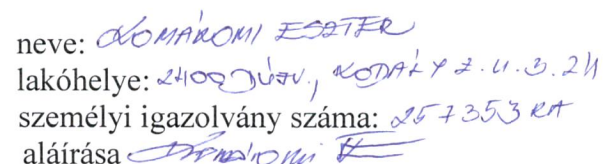 neve: KOMÁROMI ESZTER
lakóhelye: 2400 DÚJV., KODÁLY Z. U. 3. 2/1
személyi igazolvány száma: 257353 RA
aláírása Komáromi E